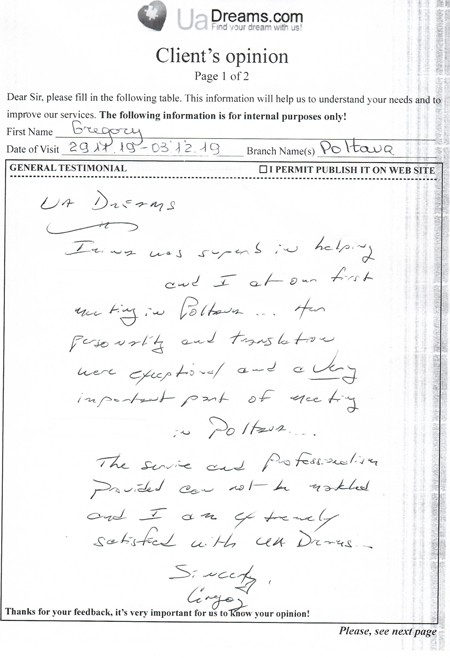 UaDreams.com
Find your dream with us!
Client's opinion
Page 1 of 2
Dear Sir, please fill in the following table. This information will help us to understand your needs and to
improve our services. The following information is for internal purposes only!
First Name Gregory
Date of Visit 29.11.19-03.12.19 Branch Name(s) Poltava
GENERAL TESTIMONIAL ☐ I PERMIT PUBLISH IT ON WEB SITE
UA Dreams
was superb in helping
and I at our first
meeting in Poltava... Her
personality and translation
were exceptional and a very
important part of meeting
in Poltava....
The service and professionalism
provided can not be matched
and I am extremely
satisfied with UA Dreams...
Sincerely,
Gregory
Thanks for your feedback, it's very important for us to know your opinion!
Please, see next page